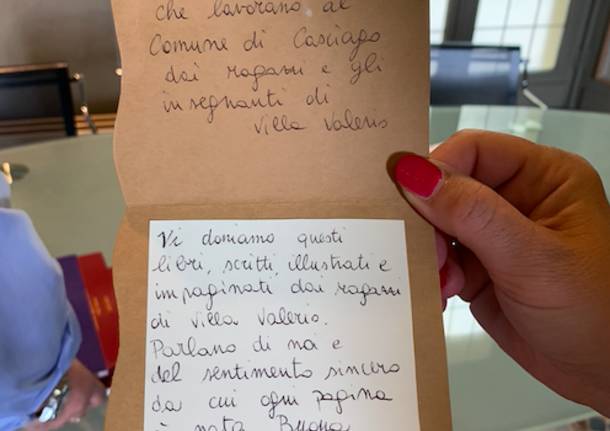 che lavorano al
Comune di Casciago
dai ragazzi e gli
insegnanti di
Villa Valerio
Vi doniamo questi
libri, scritti, illustrati e
impaginati dai ragazzi
di Villa Valerio.
Parlano di noi e
del sentimento sincero
da cui ogni pagina
è nata Buona